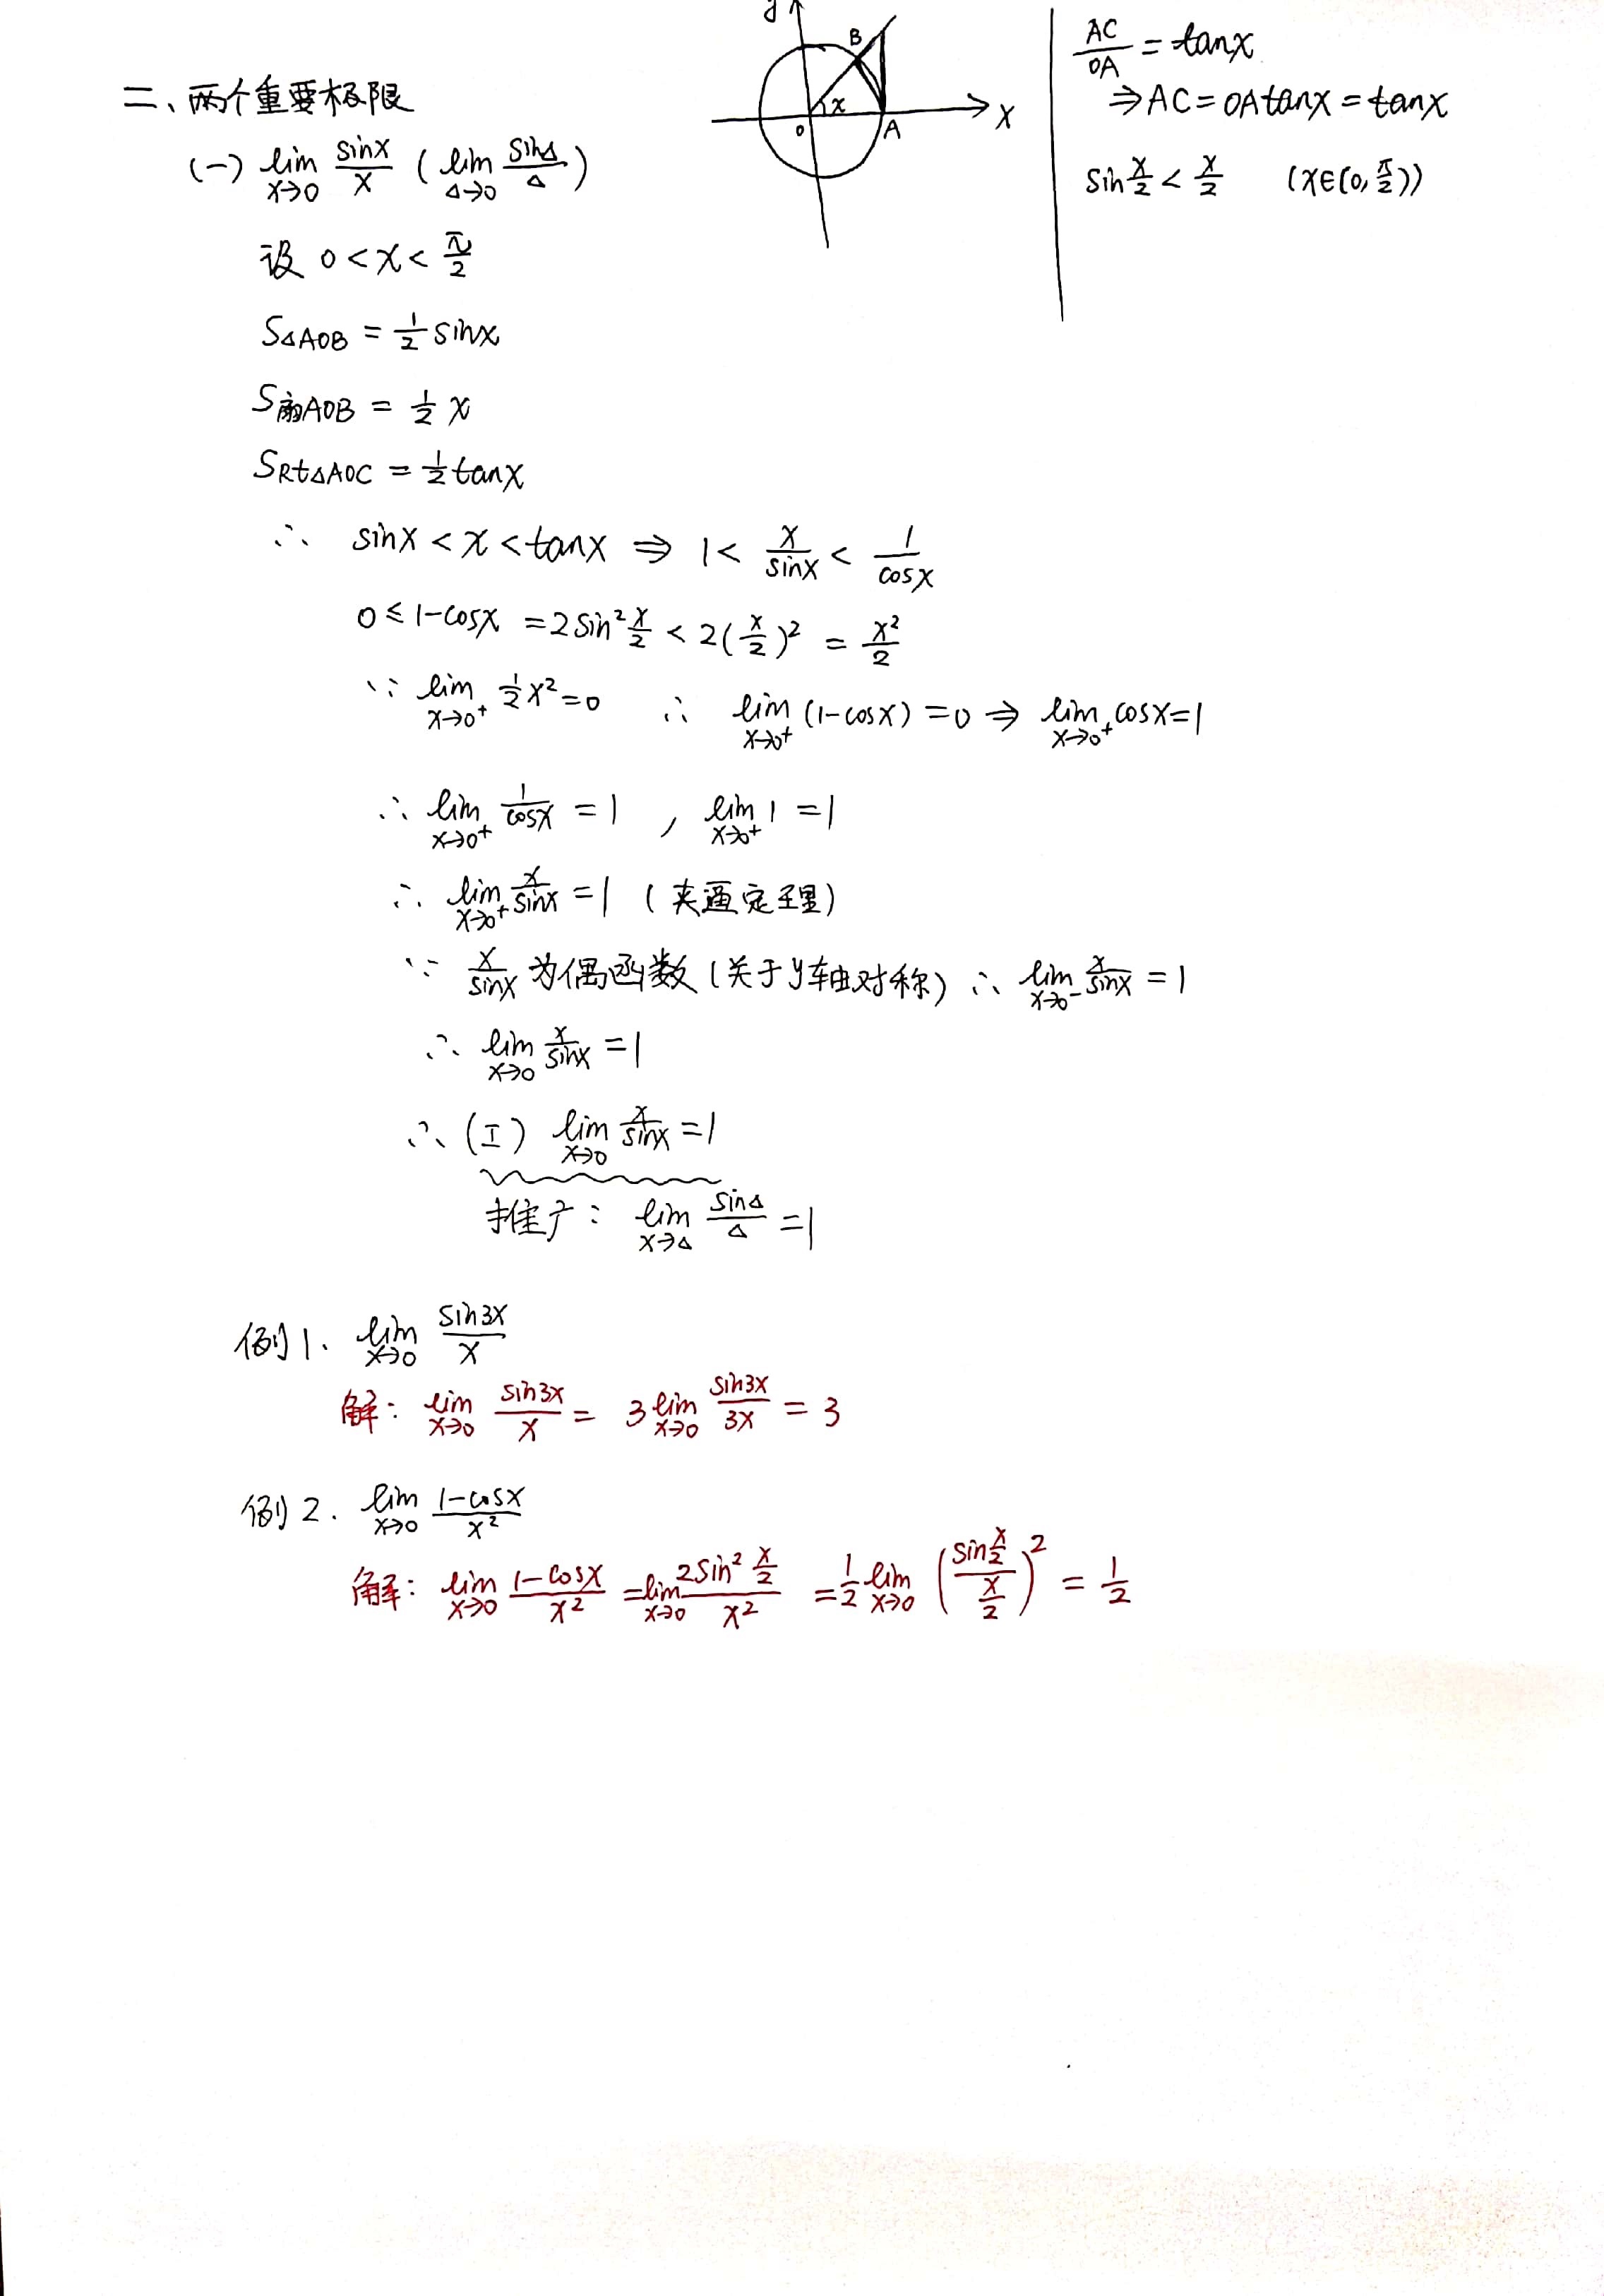 二、两个重要极限
(一) lim_{x→0} sinx/x ( lim_{△→0} sin△/△ )
y
B
x
o
A
x
AC/OA = tanx
⇒AC=OAtanx=tanx
sin x/2 < x/2 (x∈(0, π/2))
设 0<x<π/2
S△AOB = 1/2 sinx
S扇AOB = 1/2 x
SRt△AOC = 1/2 tanx
∴ sinx<x<tanx ⇒ 1< x/sinx < 1/cosx
0≤1-cosx =2sin² x/2 < 2(x/2)² = x²/2
∵ lim_{x→0⁺} 1/2 x²=0 ∴ lim_{x→0⁺} (1-cosx)=0 ⇒ lim_{x→0⁺} cosx=1
∴ lim_{x→0⁺} 1/cosx = 1 , lim_{x→0⁺} 1 =1
∴ lim_{x→0⁺} x/sinx =1 (夹逼定理)
∵ x/sinx 为偶函数(关于y轴对称) ∴ lim_{x→0⁻} x/sinx = 1
∴ lim_{x→0} x/sinx =1
∴ (I) lim_{x→0} x/sinx =1
推广: lim_{x→△} sin△/△ =1
例1、 lim_{x→0} sin3x/x
解: lim_{x→0} sin3x/x = 3 lim_{x→0} sin3x/3x = 3
例2. lim_{x→0} (1-cosx)/x²
解: lim_{x→0} (1-cosx)/x² = lim_{x→0} (2sin² x/2)/x² = 1/2 lim_{x→0} ((sin x/2)/(x/2))² = 1/2